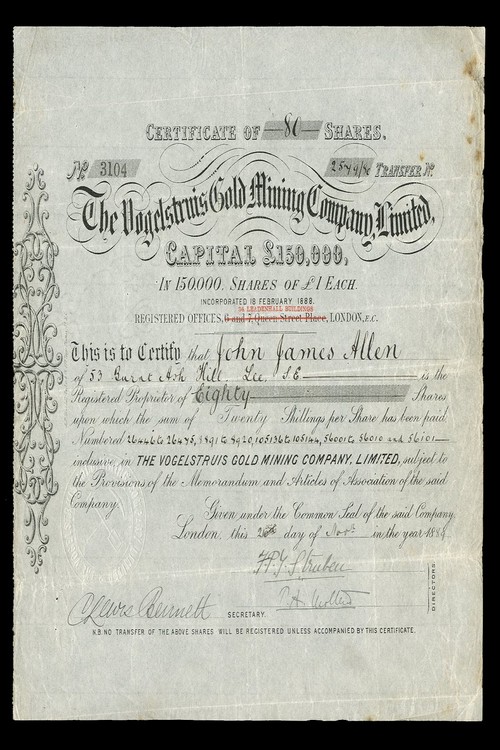 CERTIFICATE OF 80 SHARES.
No. 3104 TRANSFER No.
The Vogelstruis Gold Mining Company, Limited,
CAPITAL £150,000,
IN 150,000 SHARES OF £1 EACH.
INCORPORATED 18 FEBRUARY 1888.
34 LEADENHALL BUILDINGS
REGISTERED OFFICES, 6 and 7, Queen Street Place, LONDON, E.C.
This is to Certify that John James Allen
of 53 Burnt Ash Hill Lee, S.E. is the
Registered Proprietor of Eighty Shares
upon which the sum of Twenty Shillings per Share has been paid
Numbered 26446 to 26485, 8891 to 8920, 105136 to 105144, 56001 to 56010 and 56101
inclusive, in THE VOGELSTRUIS GOLD MINING COMPANY, LIMITED, subject to
the Provisions of the Memorandum and Articles of Association of the said
Company.
Given under the Common Seal of the said Company
London, this 26th day of Novr. in the year 188
DIRECTORS
C Lewis Bennett SECRETARY.
N.B. NO TRANSFER OF THE ABOVE SHARES WILL BE REGISTERED UNLESS ACCOMPANIED BY THIS CERTIFICATE.